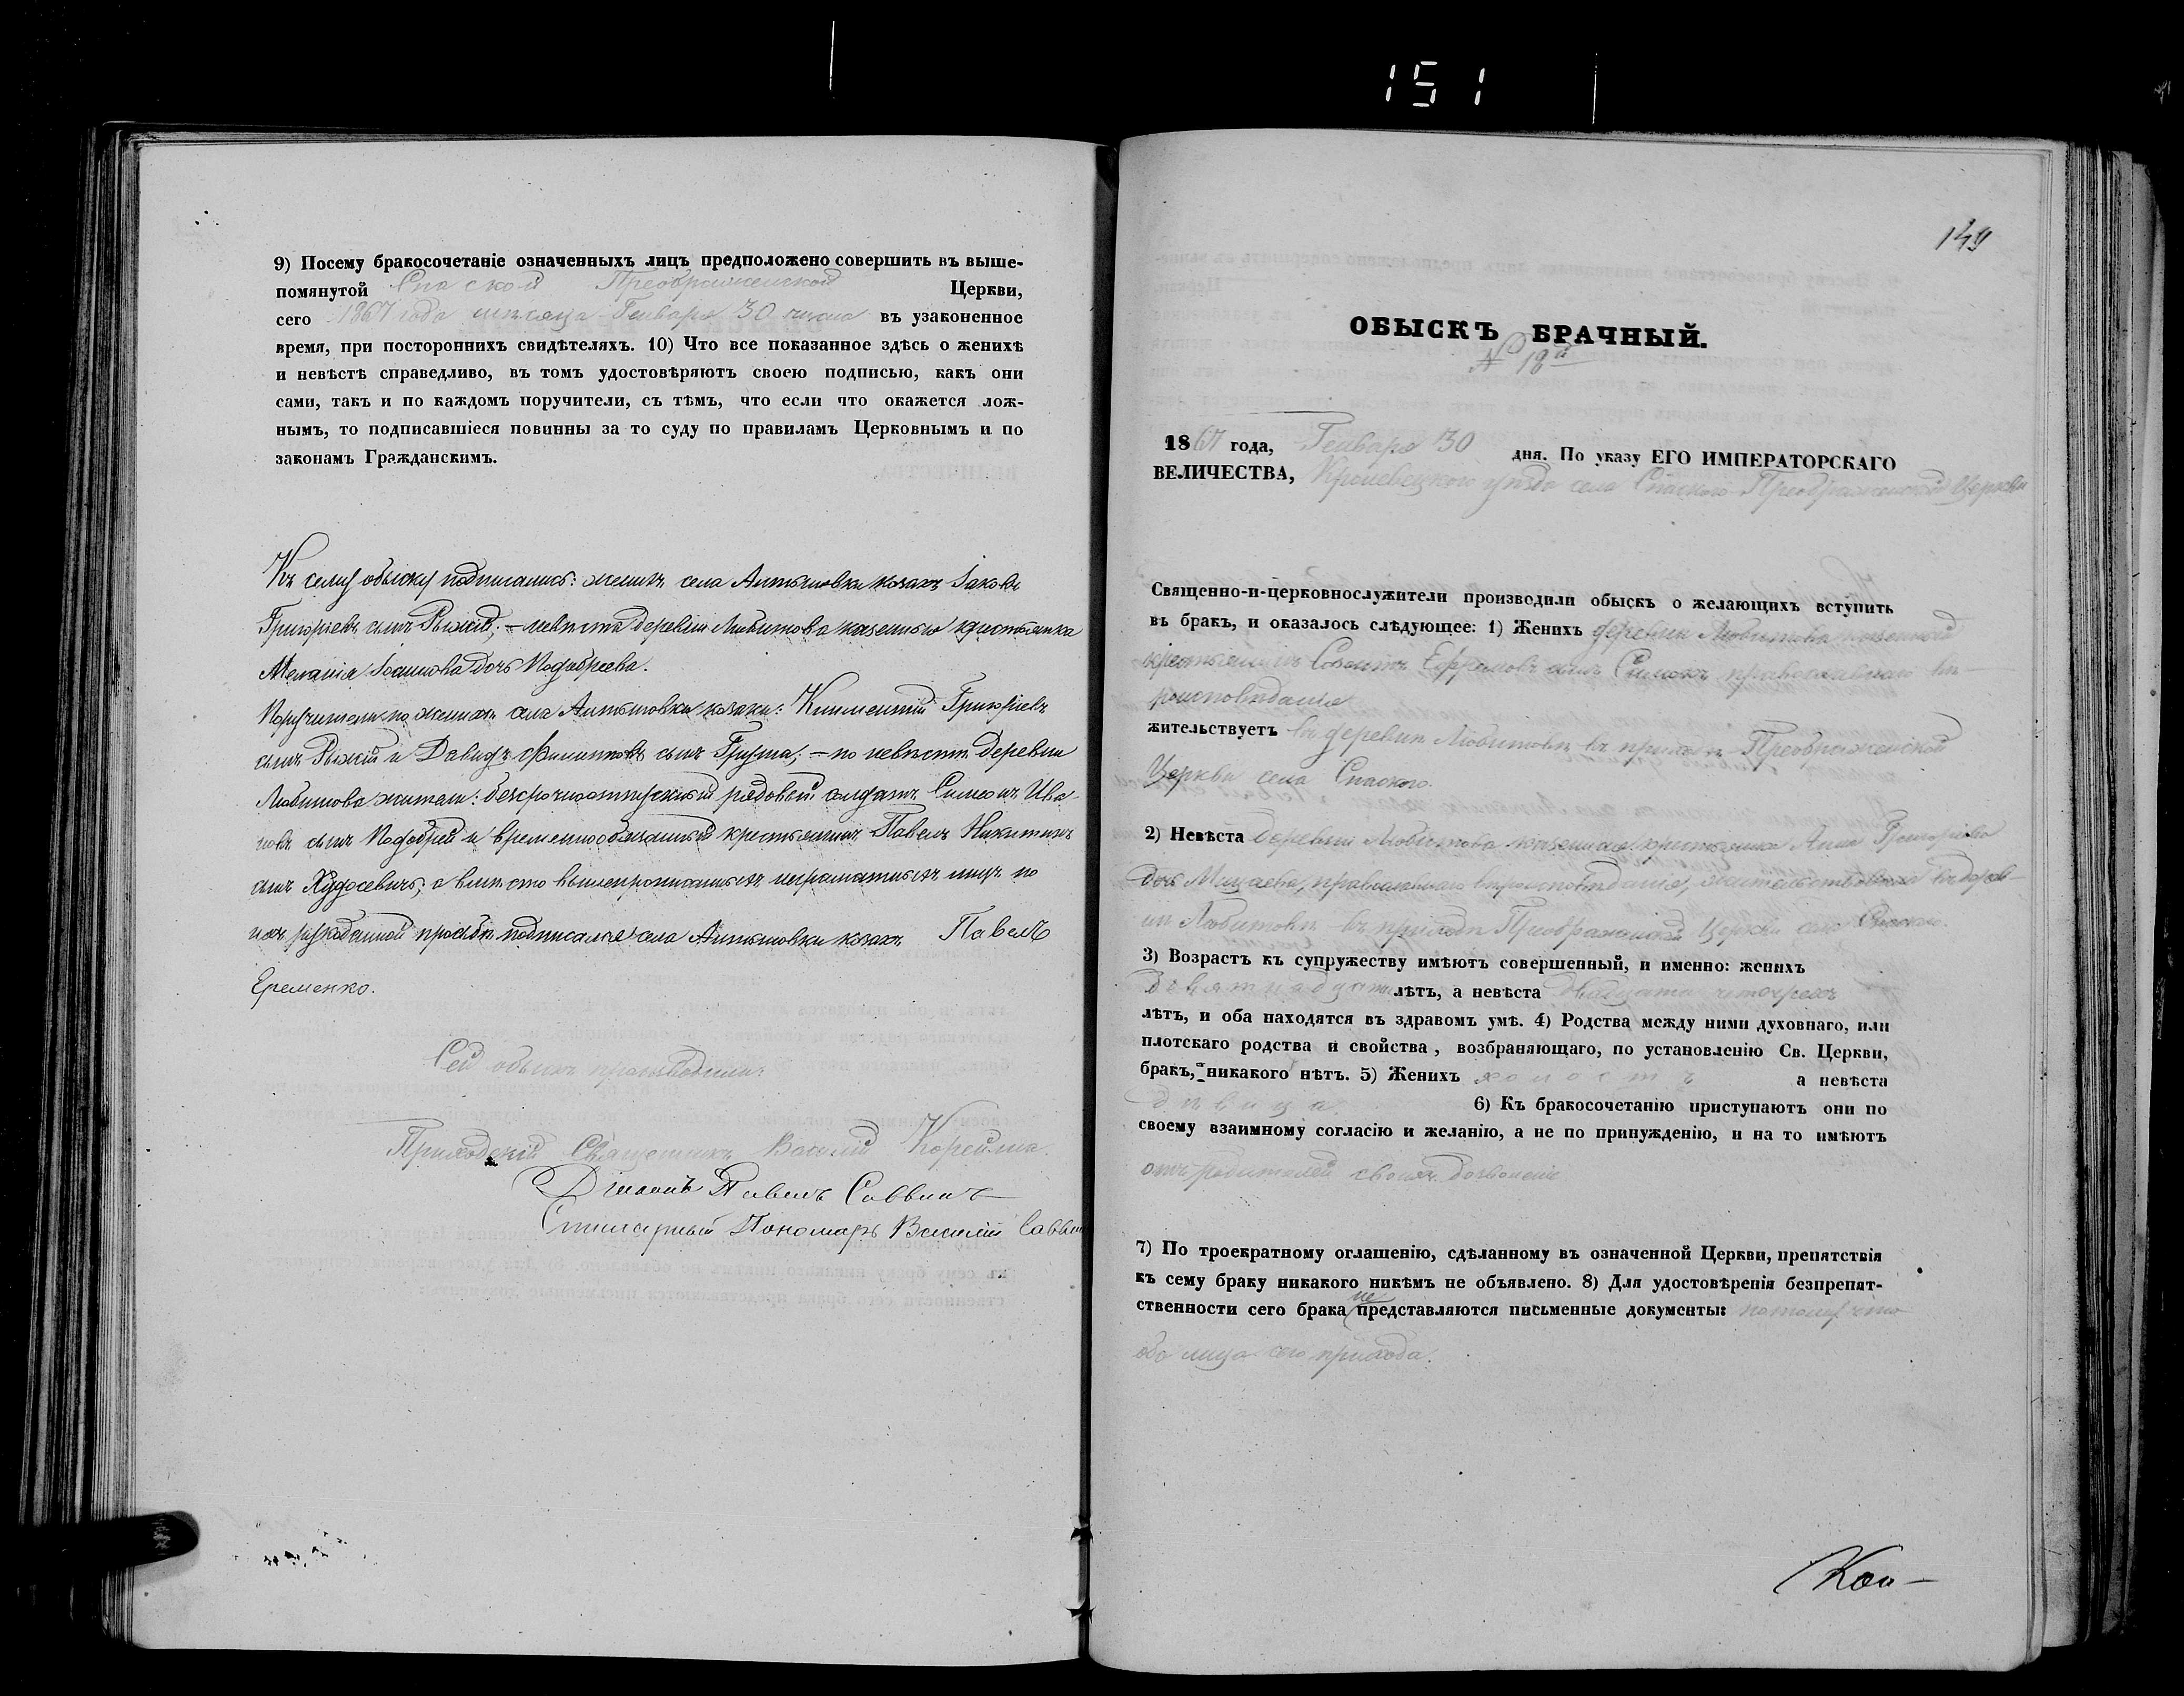 151
9) Посему бракосочетаніе означенныхъ лицъ предположено совершить въ выше-
помянутой Спаской Преображенской Церкви,
сего 1867 года мѣсяца Генваря 30 числа въ узаконенное
время, при постороннихъ свидѣтеляхъ. 10) Что все показанное здѣсь о женихѣ
и невѣстѣ справедливо, въ томъ удостовѣряютъ своею подписью, какъ они
сами, такъ и по каждомъ поручители, съ тѣмъ, что если что окажется лож-
нымъ, то подписавшіеся повинны за то суду по правиламъ Церковнымъ и по
законамъ Гражданскимъ.
Къ сему обыску подписались: женихъ села Антоновки козакъ Іаковъ
Григоріевъ сынъ Рыжій; — невѣста деревни Любитова казенная крестьянка
Меланія Іоаннова дочь Подобреева.
Поручители: по женихѣ села Антоновки козаки: Климентій Григоріевъ
сынъ Рыжій и Давидъ Филиповъ сынъ — по невѣстѣ деревни
Любитова жители: безсрочноотпускный рядовый солдатъ Симеонъ Ива-
новъ сынъ Подобрій и временнообязанный крестьянинъ Павелъ Никитинъ
сынъ Худосевичъ; а вмѣсто вышепрописанныхъ неграматныхъ лицъ по
ихъ рукоданной прозьбѣ подписался села Антоновки козакъ Павелъ
Еременко.
Сей обыскъ производили:
Приходскій Священникъ Василій Корейша.
Діаконъ Павелъ Саввичъ
Пономарь Василій
149
ОБЫСКЪ БРАЧНЫЙ.
№ 18й
1867 года, Генваря 30 дня. По указу ЕГО ИМПЕРАТОРСКАГО
ВЕЛИЧЕСТВА, Кролевецкого уѣзда села Спаского Преображенской Церкви
Священно-и-церковнослужители производили обыскъ о желающихъ вступить
въ бракъ, и оказалось слѣдующее: 1) Женихъ деревни Любитова казенный
крестьянинъ Созонтъ Ефремовъ сынъ православнаго вѣ-
роисповѣданія
жительствуетъ въ деревнѣ Любитовѣ въ приходѣ Преображенской
Церкви села Спаского.
2) Невѣста деревни Любитова казенная крестьянка Анна Григоріева
дочь православнаго вѣроисповѣданія, жительствовала въ дерев-
нѣ Любитовѣ въ приходѣ Преображенской Церкви села Спаского.
3) Возрастъ къ супружеству имѣютъ совершенный, и именно: женихъ
Девятнадцати лѣтъ, а невѣста двадцати четырехъ
лѣтъ, и оба находятся въ здравомъ умѣ. 4) Родства между ними духовнаго, или
плотскаго родства и свойства, возбраняющаго, по установленію Св. Церкви,
бракъ, никакого нѣтъ. 5) Женихъ холостъ а невѣста
дѣвица. 6) Къ бракосочетанію приступаютъ они по
своему взаимному согласію и желанію, а не по принужденію, и на то имѣютъ
отъ родителей своихъ дозволеніе
7) По троекратному оглашенію, сдѣланному въ означенной Церкви, препятствія
къ сему браку никакого никѣмъ не объявлено. 8) Для удостовѣренія безпрепят-
ственности сего брака не представляются письменные документы: потому что
оба лица сего прихода.